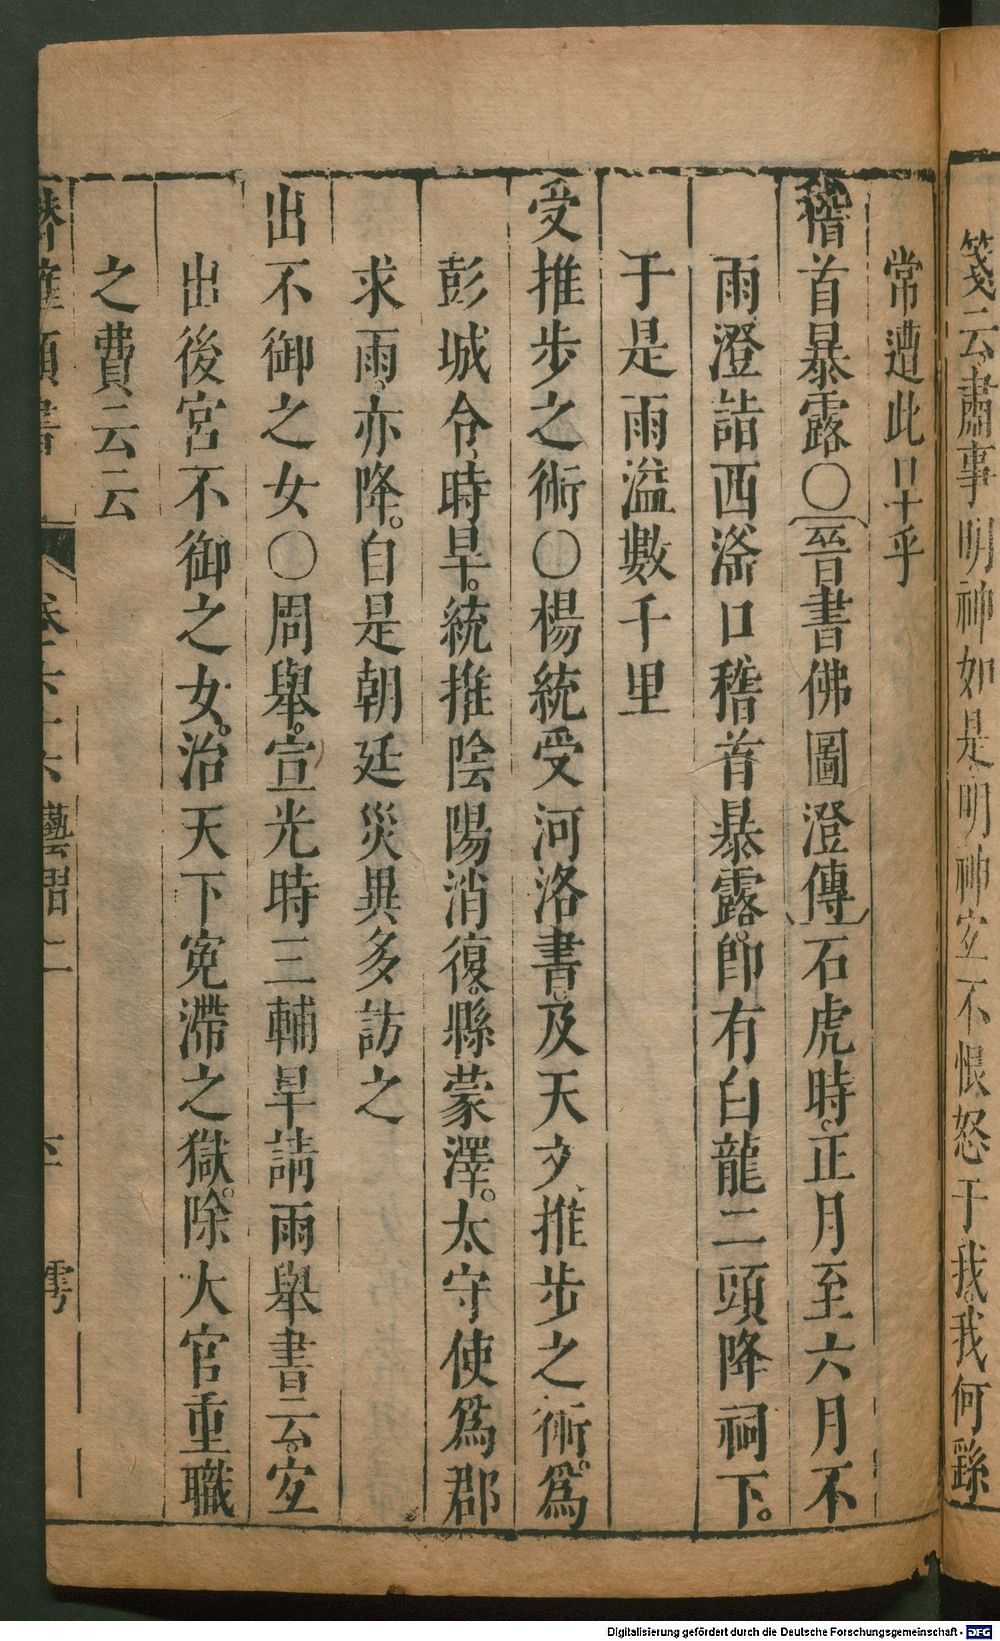 箋云肅事明神如是明神宜不恨怒于我我何繇
常遭此旱乎
稽首暴露○晉書佛圖澄傳石虎時正月至六月不
雨澄詣西滏口稽首暴露即有白龍二頭降祠下
于是雨溢數千里
受推步之術○楊統受河洛書及天文推步之術爲
彭城令時旱統推陰陽消復縣蒙澤太守使爲郡
求雨亦降自是朝廷災異多訪之
出不御之女○周舉宣光時三輔旱請雨舉書云宜
出後宮不御之女治天下寃滯之獄除大官重職
之費云云
卷 藝習 雩
Digitalisierung gefördert durch die Deutsche Forschungsgemeinschaft - DFG